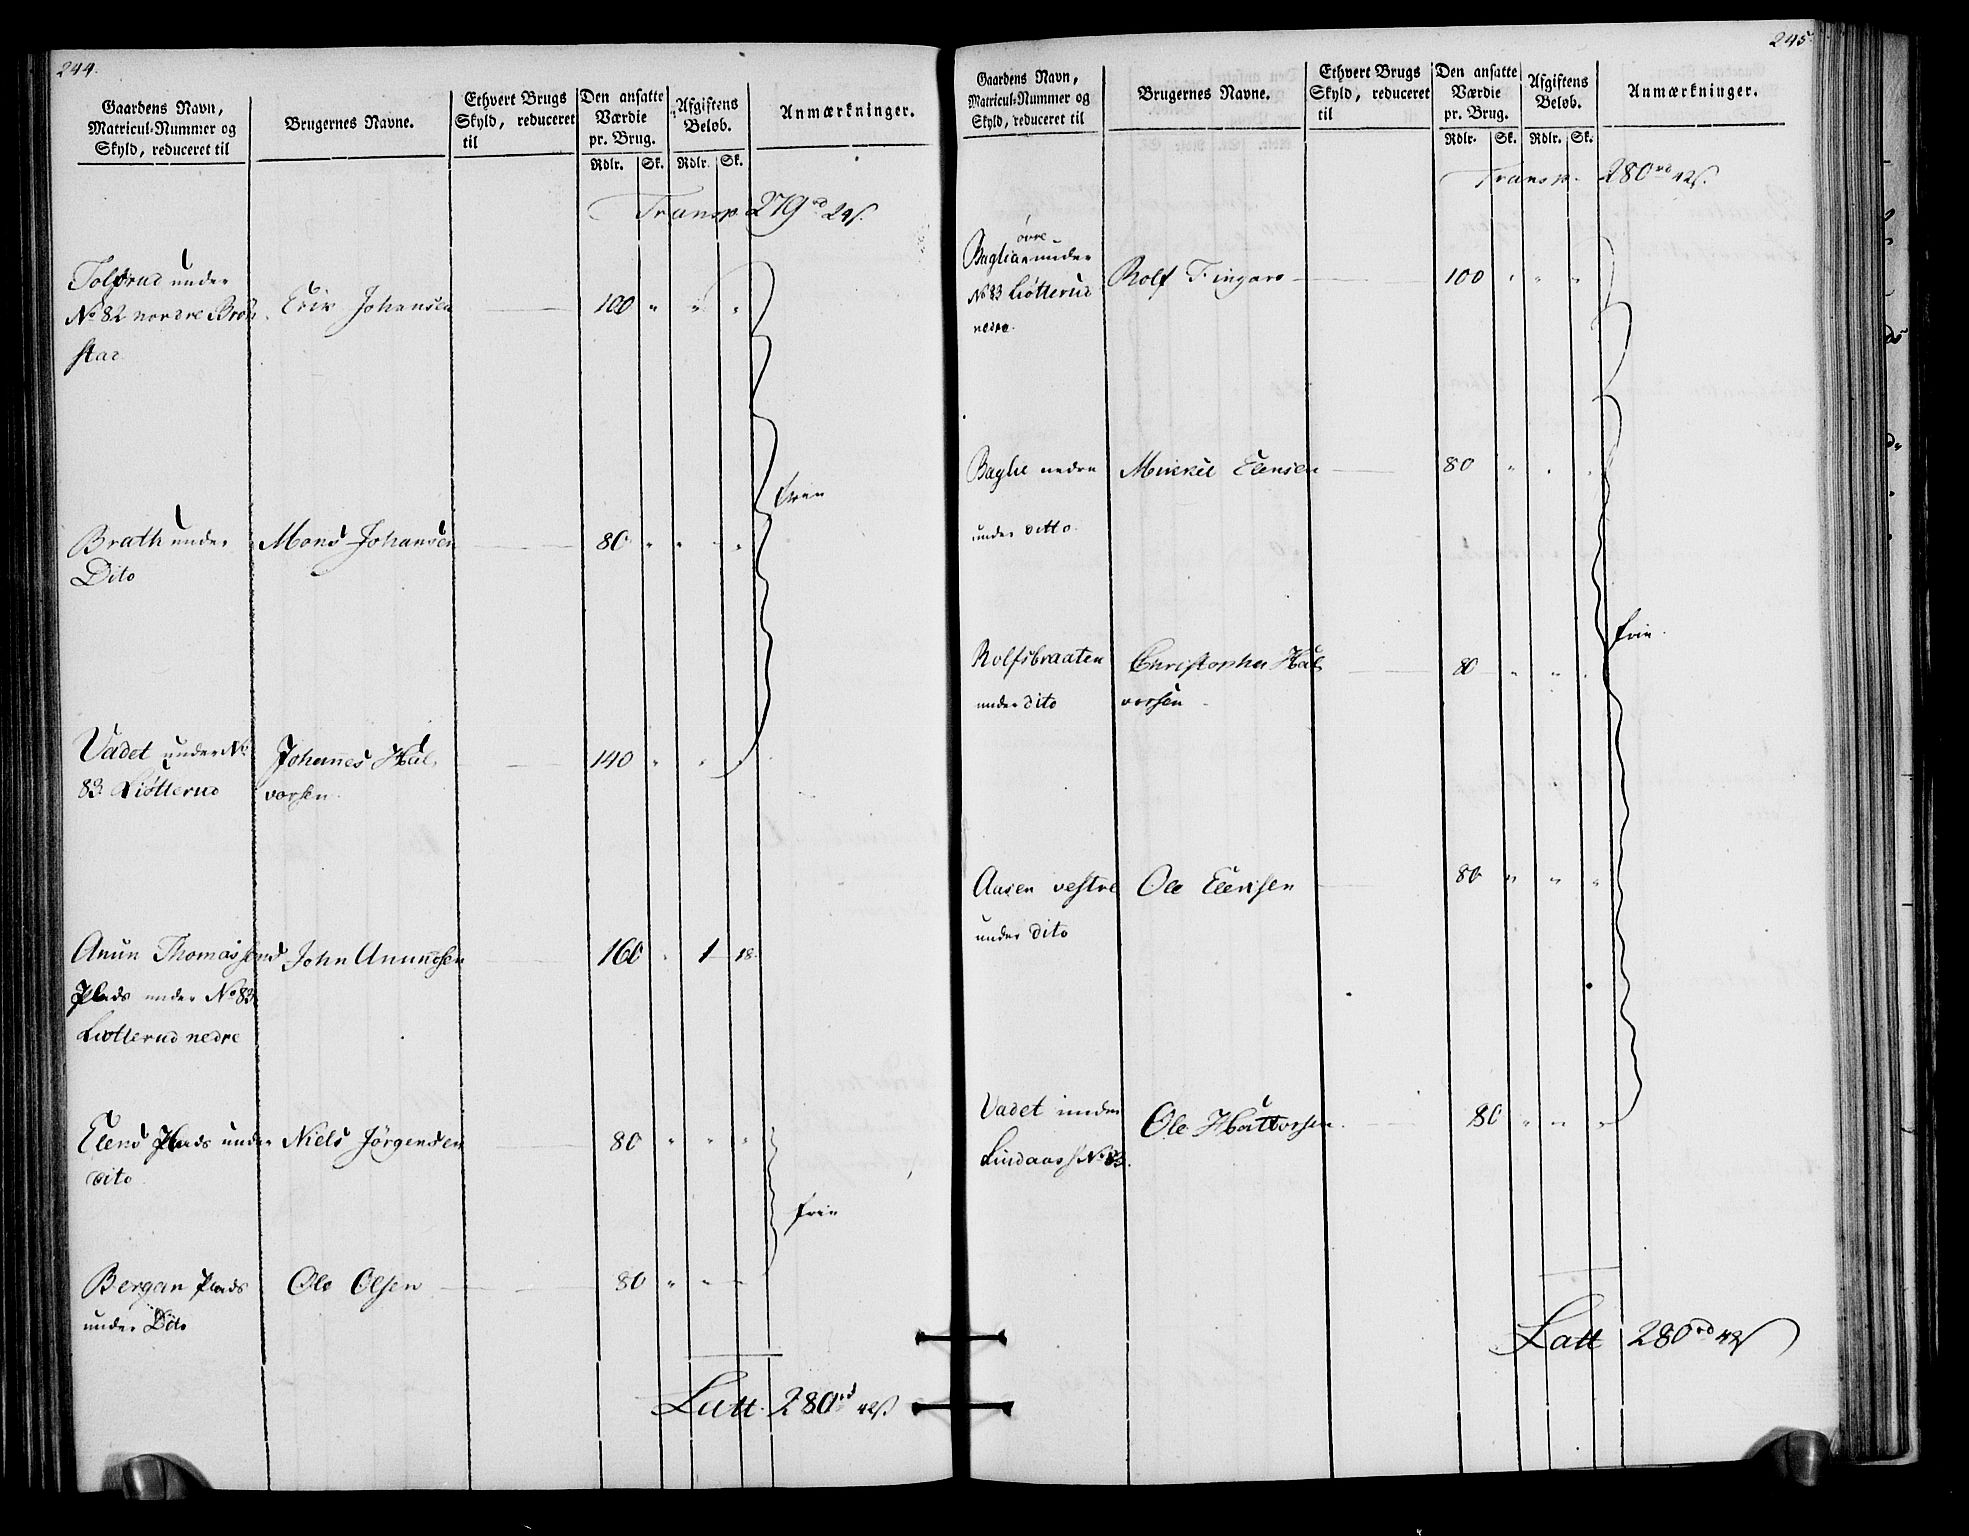 244.
Gaardens Navn,
Matricul-Nummer og
Skyld, reduceret til
Brugernes Navne.
Ethvert Brugs
Skyld, reduceret
til
Den ansatte
Værdie
pr. Brug.
Rdlr. Sk.
Afgiftens
Beløb.
Rdlr. Sk.
Anmærkninger.
Transp. 279rd 24s.
under Erik Johansen 100 " " "
No 82 nordre
Brath under Mons Johansen 80 " " "
Dito
frie
Vadet under No Johannes Hal 140 " " "
83 Liøtterud vorsen
Anun Thomassens John Anundsen 160 " 1 18
Plads under No 83
Liøtterud nedre
Plads under Niels Jørgensen 80 " " "
dito
frie
Bergan Plads Ole Olsen 80 " " "
under Dito
Latt. 280rd 42s.
245.
Gaardens Navn,
Matricul-Nummer og
Skyld, reduceret til
Brugernes Navne.
Ethvert Brugs
Skyld, reduceret
til
Den ansatte
Værdie
pr. Brug.
Rdlr. Sk.
Afgiftens
Beløb.
Rdlr. Sk.
Anmærkninger.
Transp. 280rd 42s.
øvre
under Rolf 100 " " "
No 83 Liøtterud
nedre
Baglie nedre 80 " " "
under ditto
frie
Rolfsbraaten Christopher Hal 80 " " "
under dito vorsen
Aasen vestre Ole 80 " " "
under dito
Vadet under Ole 80 " " "
Lindaas No 83.
Latt 280rd 42s